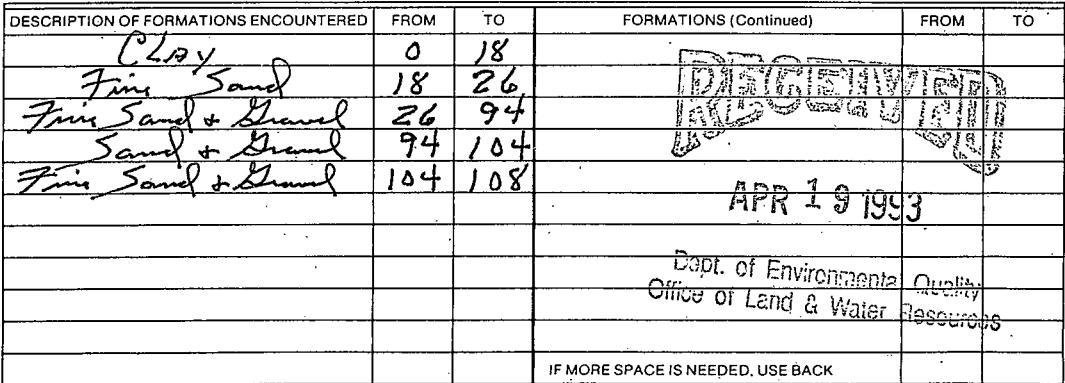 DESCRIPTION OF FORMATIONS ENCOUNTERED FROM TO FORMATIONS (Continued) FROM TO
Clay 0 18
Fine Sand 18 26
Fine Sand & Gravel 26 94
Sand & Gravel 94 104
Fine Sand & Gravel 104 108
RECEIVED
APR 19 1993
Dept. of Environmental Quality
Office of Land & Water Resources
IF MORE SPACE IS NEEDED, USE BACK